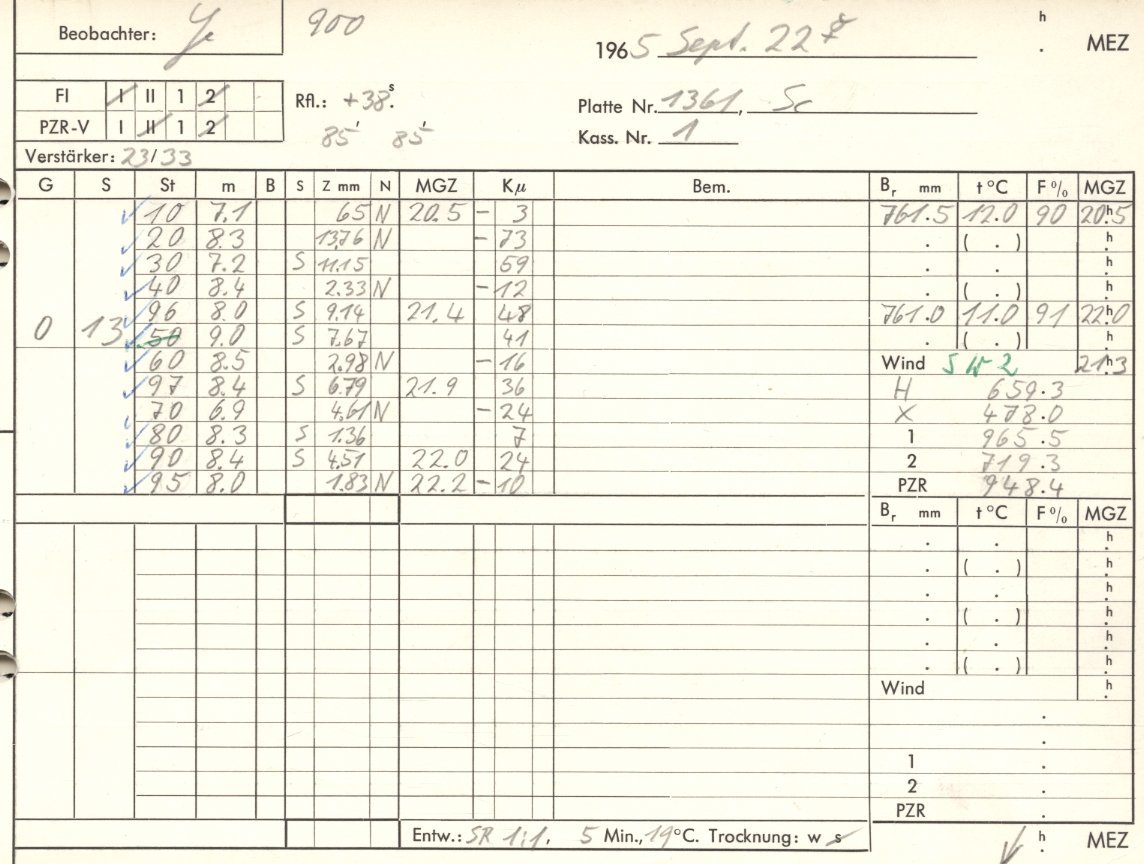 Beobachter: Je 900 1965 Sept. 22 ☿ h . MEZ
FI I II 1 2 Rfl.: +38.s Platte Nr. 1361, Sc
PZR-V I II 1 2 85' 85' Kass. Nr. 1
Verstärker: 23/33
G S St m B S Z mm N MGZ Kμ Bem. Br mm t °C F % MGZ
✓ 10 7.1 65 N 20.5 - 3 761.5 12.0 90 20.5 h
✓ 20 8.3 13.76 N - 73 . ( . ) h
✓ 30 7.2 S 11.15 59 . . h
✓ 40 8.4 2.33 N - 12 . ( . ) h
✓ 96 8.0 S 9.14 21.4 48 761.0 11.0 91 22.0 h
0 13 ✓ 50 9.0 S 7.67 41 . ( . ) h
✓ 60 8.5 2.98 N - 16 Wind SW 2 21.3 h
✓ 97 8.4 S 6.79 21.9 36 H 659.3
✓ 70 6.9 4.61 N - 24 X 478.0
✓ 80 8.3 S 1.36 7 1 965.5
✓ 90 8.4 S 4.51 22.0 24 2 719.3
✓ 95 8.0 1.83 N 22.2 - 10 PZR 948.4
Br mm t °C F % MGZ
. . h
. ( . ) h
. . h
. ( . ) h
. . h
. ( . ) h
Wind h
.
.
1 .
2 .
PZR .
Entw.: SR 1:1, 5 Min., 19 °C. Trocknung: w s h . MEZ